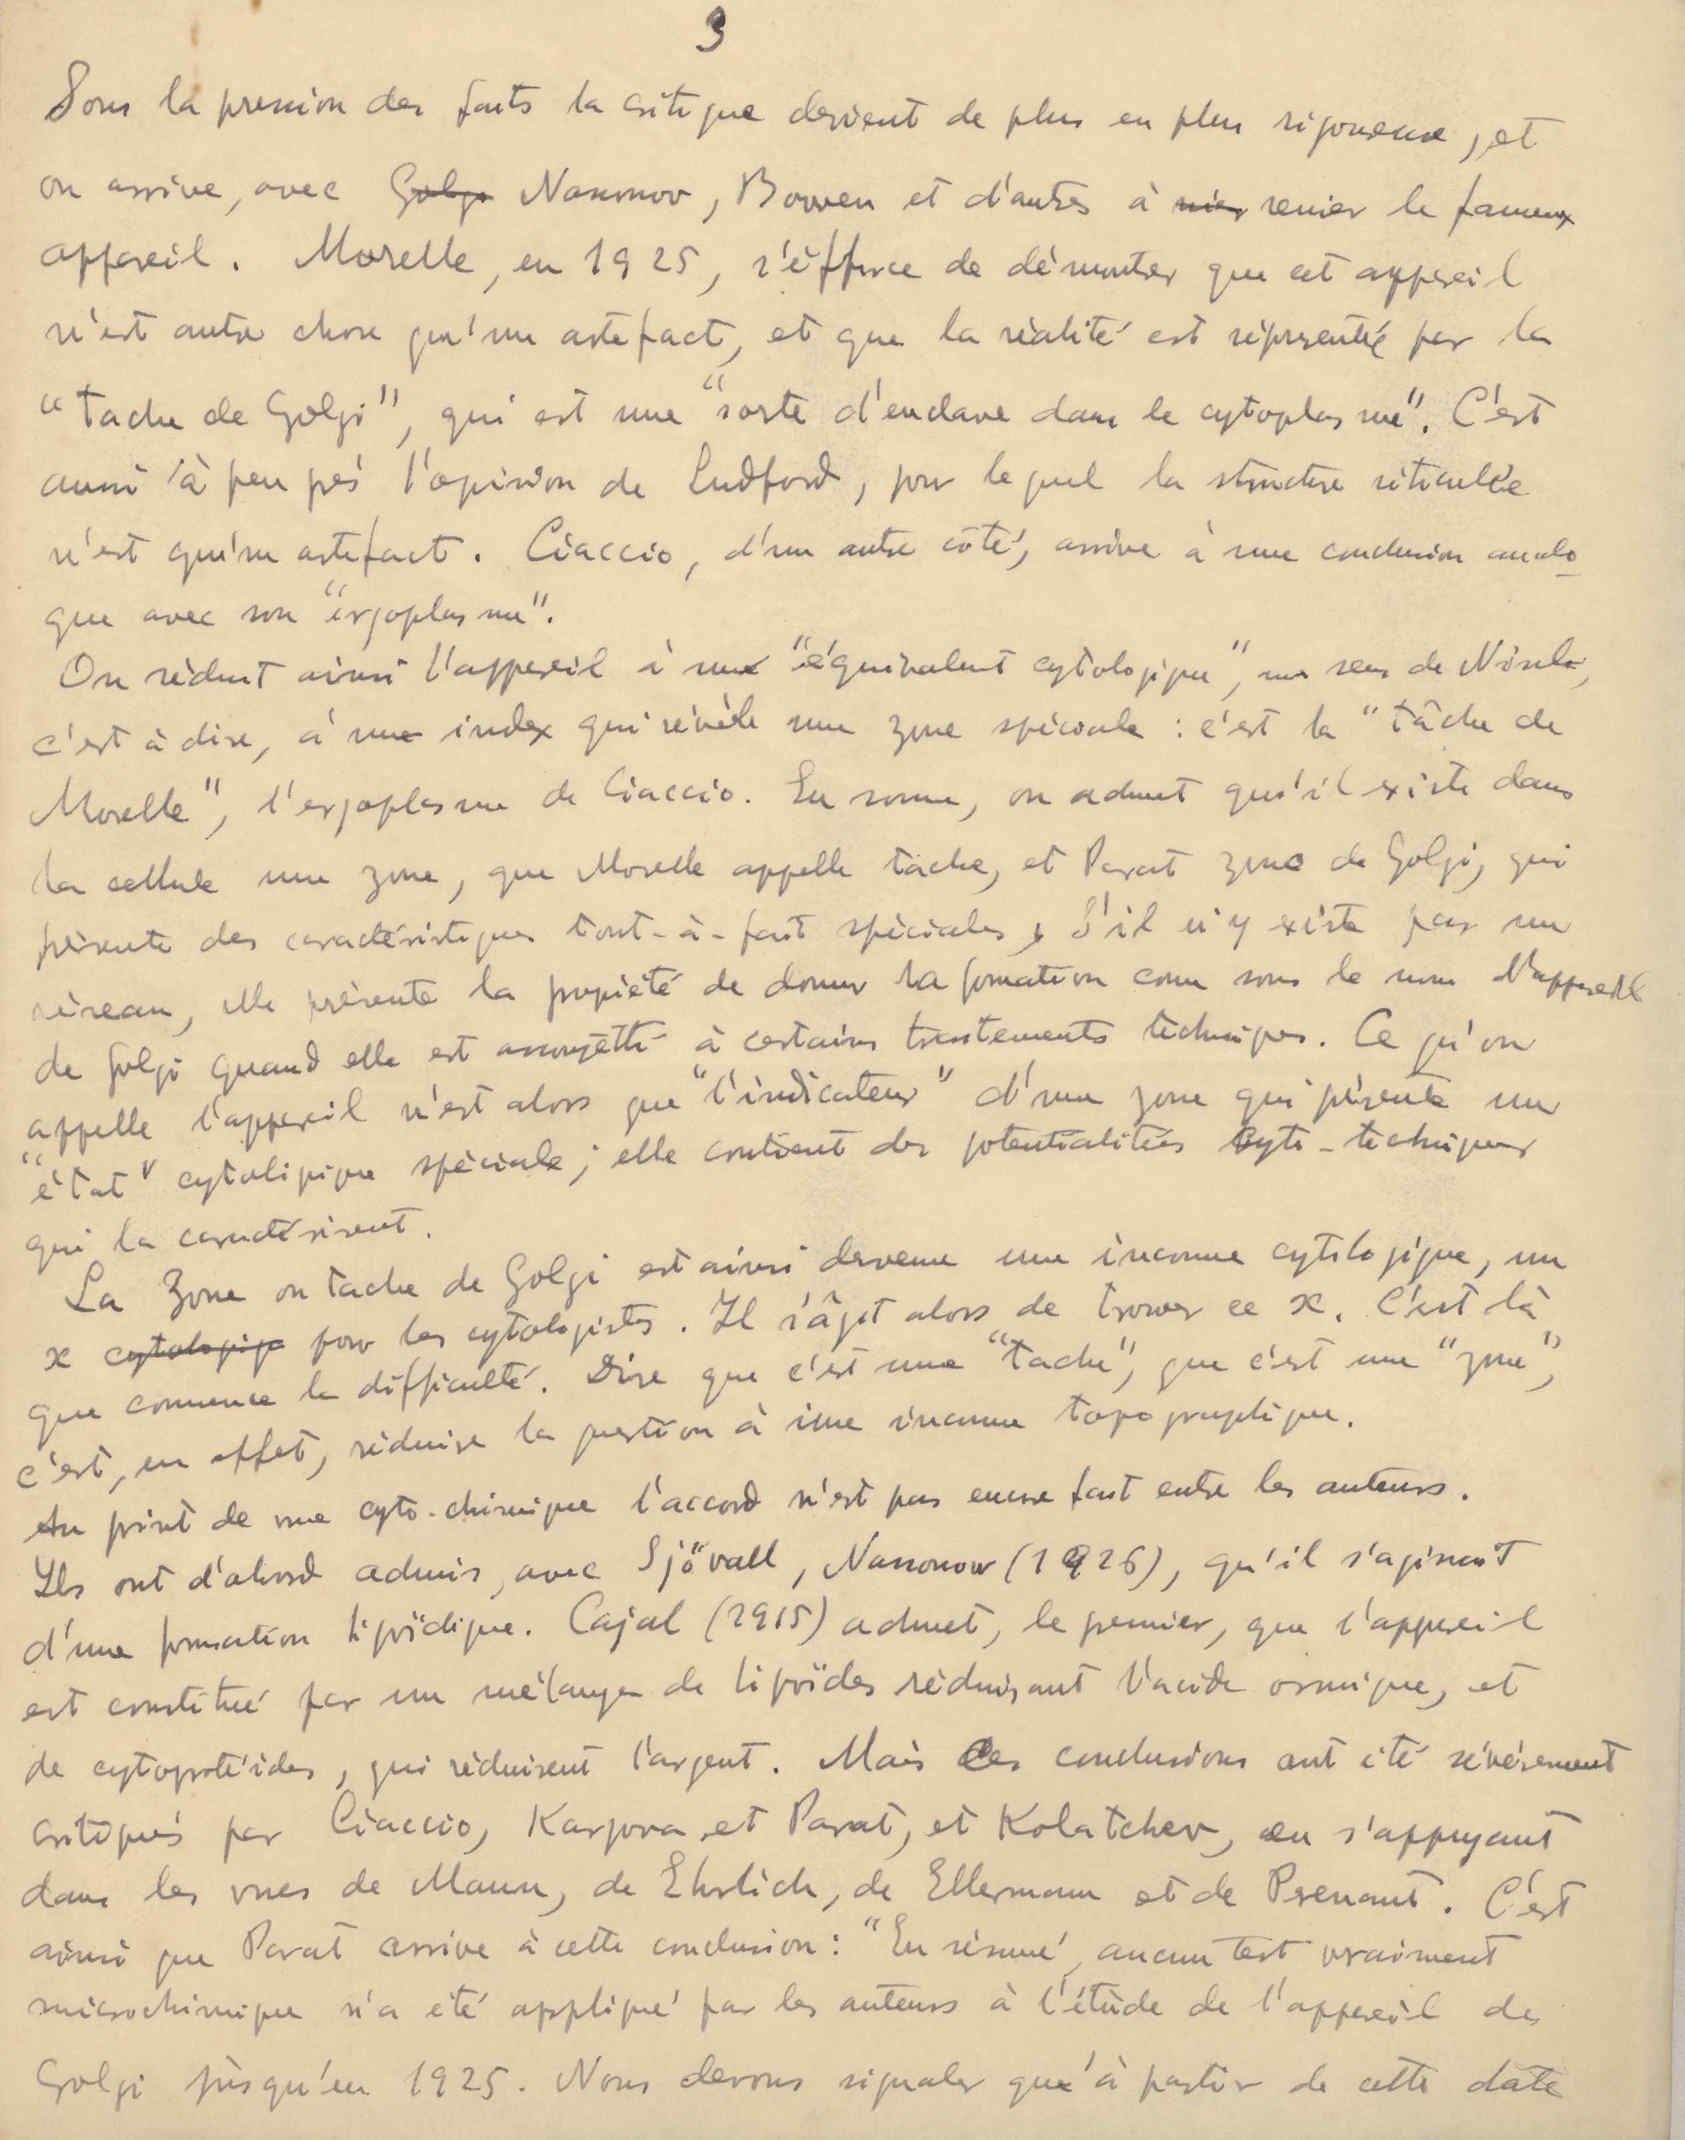 3
Sous la pression des faits la critique devient de plus en plus rigoureuse, et
on arrive, avec Golgi Nassonov, Bowen et d'autres à nier renier le fameux
appareil. Morelle, en 1925, s'éfforce de démontrer que cet appareil
n'est autre chose qu'un artefact, et que la réalité est répresentée par la
"tache de Golgi", qui est une "sorte d'enclave dans le cytoplasme". C'est
aussi à peu près l'opinion de Ludford, pour lequel la structure réticulée
n'est qu'un artefact. Ciaccio, d'un autre côté, arrive à une conclusion analo-
gue avec son "érgoplasme".
On réduit ainsi l'appareil à une "équivalent cytologique", au sens de Nissl,
c'est à dire, à une index qui révèle une zone spéciale : c'est la "tâche de
Morelle", l'ergoplasme de Ciaccio. En somme, on admet qu'il existe dans
la cellule une zone, que Morelle appelle tache, et Parat zone de Golgi, qui
présente des caractéristiques tout-à-fait spéciales, S'il n'y existe pas un
réseau, elle présente la propiété de donner la formation connu sous le nom d'appareil
de Golgi quand elle est assoujétti à certains traitements téchniques. Ce qu'on
appelle l'appareil n'est alors que "l'indicateur" d'une zone qui présente un
"état" cytoligique spéciale; elle contient des potentialitées cyto-techniques
qui la caractérisent.
La Zone ou tache de Golgi est ainsi devenue une inconnue cytologique, un
x cytologiqe pour les cytologistes. Il s'âgit alors de trouver ce x. C'est là
que commence la difficulté. Dire que c'est une "tache", que c'est une "zone",
c'est, en effet, réduire la question à une inconnue topographique.
Au point de vue cyto-chimique l'accord n'est pas encore fait entre les auteurs.
Ils ont d'abord admis, avec Sjövall, Nassonow (1926), qu'il s'agissait
d'une formation lipoïdique. Cajal (1915) admet, le premier, que l'appareil
est constitué par un mélange de lipoïdes réduisant l'acide osmique, et
de cytoprotéides, qui réduisent l'argent. Mais ces conclusions ont été sévérement
critiqués par Ciaccio, Karpova et Parat, et Kolatchev, en s'appuyant
dans les vues de Mann, de Ehrlich, de Ellermann et de Prenant. C'est
ainsi que Parat arrive à cette conclusion : "En résumé, aucun test vraiment
microchimique n'a été appliqué par les auteurs à l'étude de l'appareil de
Golgi jusqu'en 1925. Nous devons signaler qu'à partir de cette date